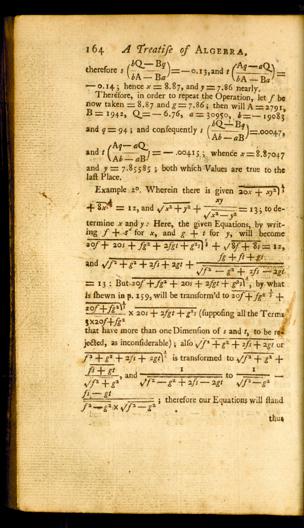 164 A Treatise of ALGEBRA,
therefore s (bQ — Bq / bA — Ba) = — 0.13, and t (Aq — aQ / bA — Ba)
— 0.14; hence x = 8.87, and y = 7.86 nearly.
Therefore, in order to repeat the Operation, let f be
now taken = 8.87 and g = 7.86; then will A = 2791,
B = 1942, Q = — 6.76, a = 30950, b = — 19083
and q = 94; and consequently s (bQ — Bq / Ab — aB) = .00047,
and t (Aq — aQ / Ab — aB) = — .00415; whence x = 8.87047
and y = 7.85585; both which Values are true to the
last Place.
Example 2º. Wherein there is given 20x + xy²
+ 8x = 12, and √x² + y² + xy / √x² — y² = 13; to de-
termine x and y: Here, the given Equations, by writ-
ing f + s for x, and g + t for y, will become
20f + 20s + fg² + 2fgt + g²s + √8f + 8s = 12,
and √f² + g² + 2fs + 2gt + fg + ft + gs / √f² — g² + 2fs — 2gt
= 13: But 20f + fg² + 20s + 2fgt + g²s, by what
is shewn in p. 159, will be transform'd to 20f + fg² +
20f + fg² / 3×20f + fg² × 20s + 2fgt + g²s (supposing all the Terms
that have more than one Dimension of s and t, to be re-
jected, as inconsiderable); also √f² + g² + 2fs + 2gt or
f² + g² + 2fs + 2gt is transformed to √f² + g² +
fs + gt / √f² + g², and 1 / √f² — g² + 2fs — 2gt to 1 / √f² — g² —
fs — gt / f² — g² × √f² — g²; therefore our Equations will stand
thus